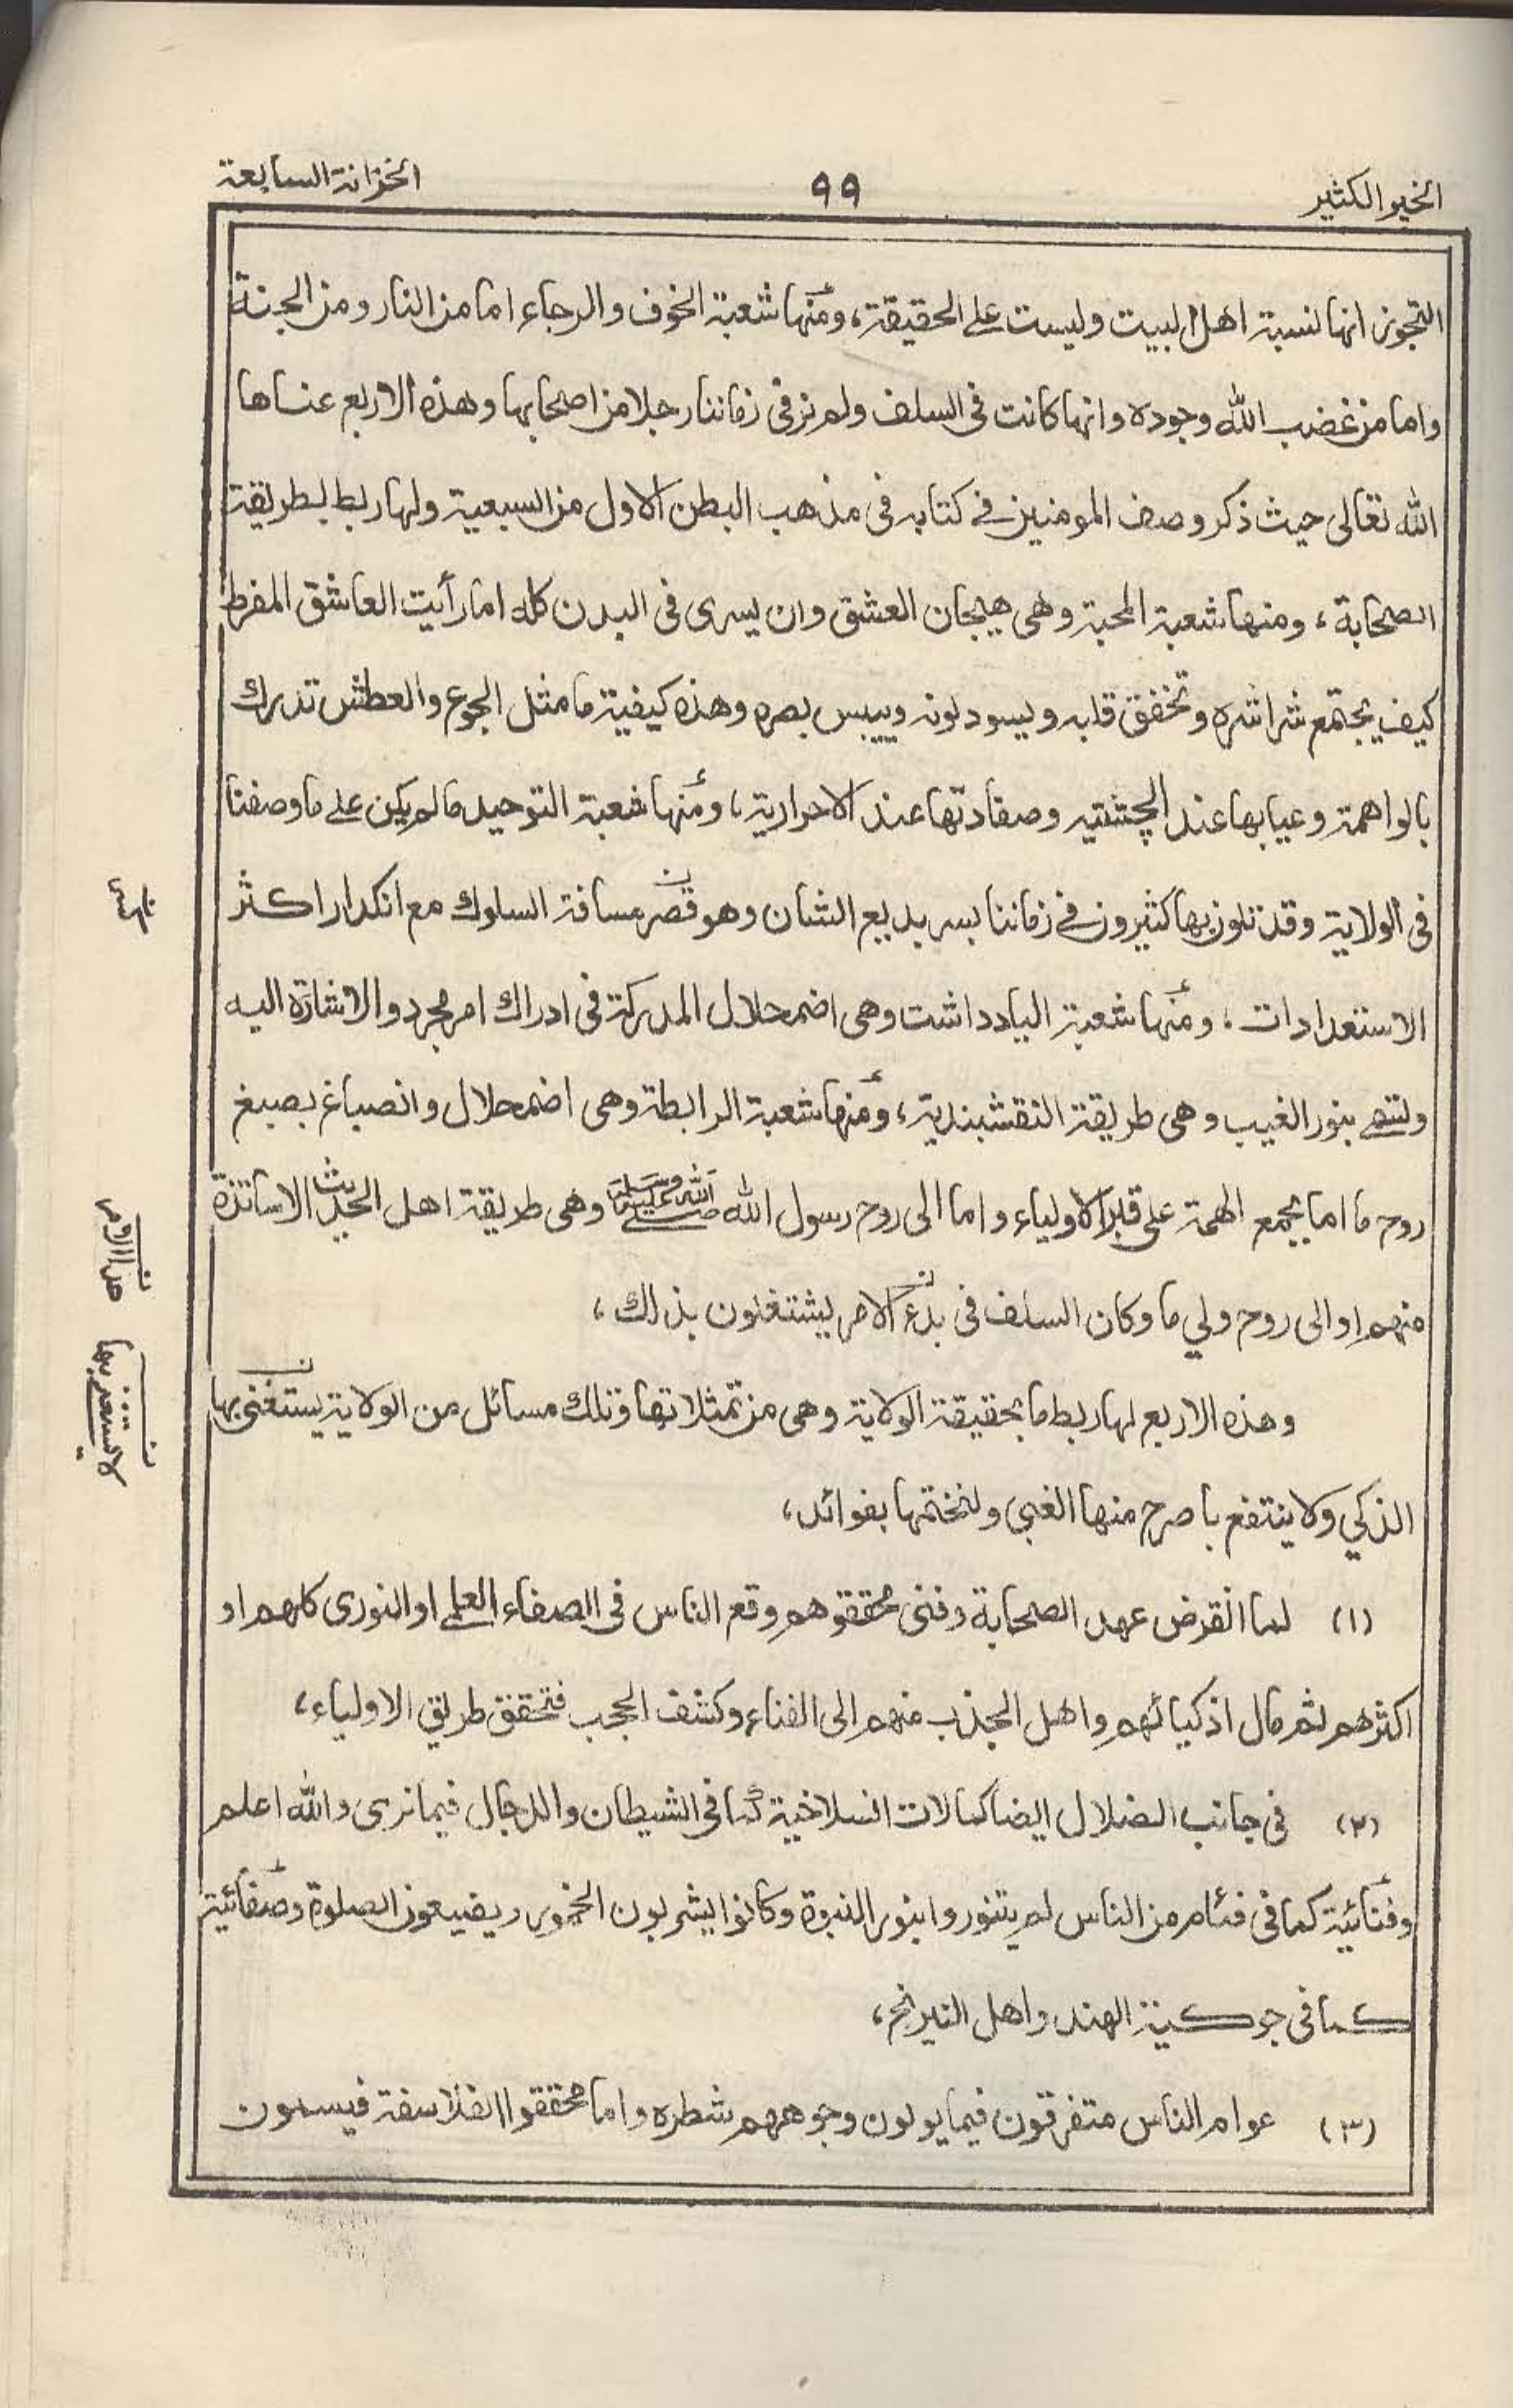 الخير الكثير
٩٩
الخزانة السابعة
التجوز انها نسبة اهل البيت وليست على الحقيقة، ومنها شعبة الخوف والرجاء اما من النار ومن الجنة
واما من غضب الله وجوده وانها كانت فى السلف ولم نر فى زماننا رجلا من اصحابها وهذه الاربع عناها
الله تعالى حيث ذكر وصف المومنين فى كتابه فى مذهب البطن الاول من السبعية ولها ربط بطريقة
الصحابة، ومنها شعبة المحبة وهى هيجان العشق وان يسرى فى البدن كله اما رأيت العاشق المفرط
كيف يجتمع شراشره وتخفق قلبه ويسود لونه وييبس بصره وهذه كيفية ما مثل الجوع والعطش تدرك
بالواهمة وعبابها عند الچشتيه وصفادتها عند الاحرارية، ومنها شعبة التوحيد ما لم يكن على ما وصفنا
فى الولاية وقد تلون بها كثيرون فى زماننا بسر بديع الشان وهو قصر مسافة السلوك مع انكدار اكثر
الاستعدادات، ومنها شعبة الياد داشت وهى اضمحلال المدركة فى ادراك امر مجرد والاشارة اليه
وتنتهى بنور الغيب وهى طريقة النقشبندية، ومنها شعبة الرابطة وهى اضمحلال وانصباغ بصبغ
روح ما اما بجمع الهمة على قبر الاولياء واما الى روح رسول الله صلى الله عليه وسلم وهى طريقة اهل الحديث الاساتذة
منهم او الى روح ولي ما وكان السلف فى بدء الامر يشتغلون بذلك،
وهذه الاربع لها ربط ما بحقيقة الولاية وهى من تمثلاتها وتلك مسائل من الولاية يستغنى بها
الذكي ولا ينتفع باصرح منها الغبى ولنختمها بفوائد،
(١) لما انقرض عهد الصحابة وفنى محققوهم وقع الناس فى الصفاء العلمى او النورى كلهم او
اكثرهم ثم مال اذكيائهم واهل الجذب منهم الى الفناء وكشف الحجب فتحقق طريق الاولياء،
(٢) فى جانب الضلال ايضا كمالات انسلاخية كما فى الشيطان والدجال فيما نرى والله اعلم
وفنائية كما فى فئام من الناس لم يتنوروا بنور النبوة وكانوا يشربون الخمور ويضيعون الصلوة وصفائية
كما فى جوكية الهند واهل النيرنج،
(٣) عوام الناس متفرقون فيما يولون وجوههم شطره واما محققوا الفلاسفة فيسمون
ن هذا الامر
ن لا يستغنى بها